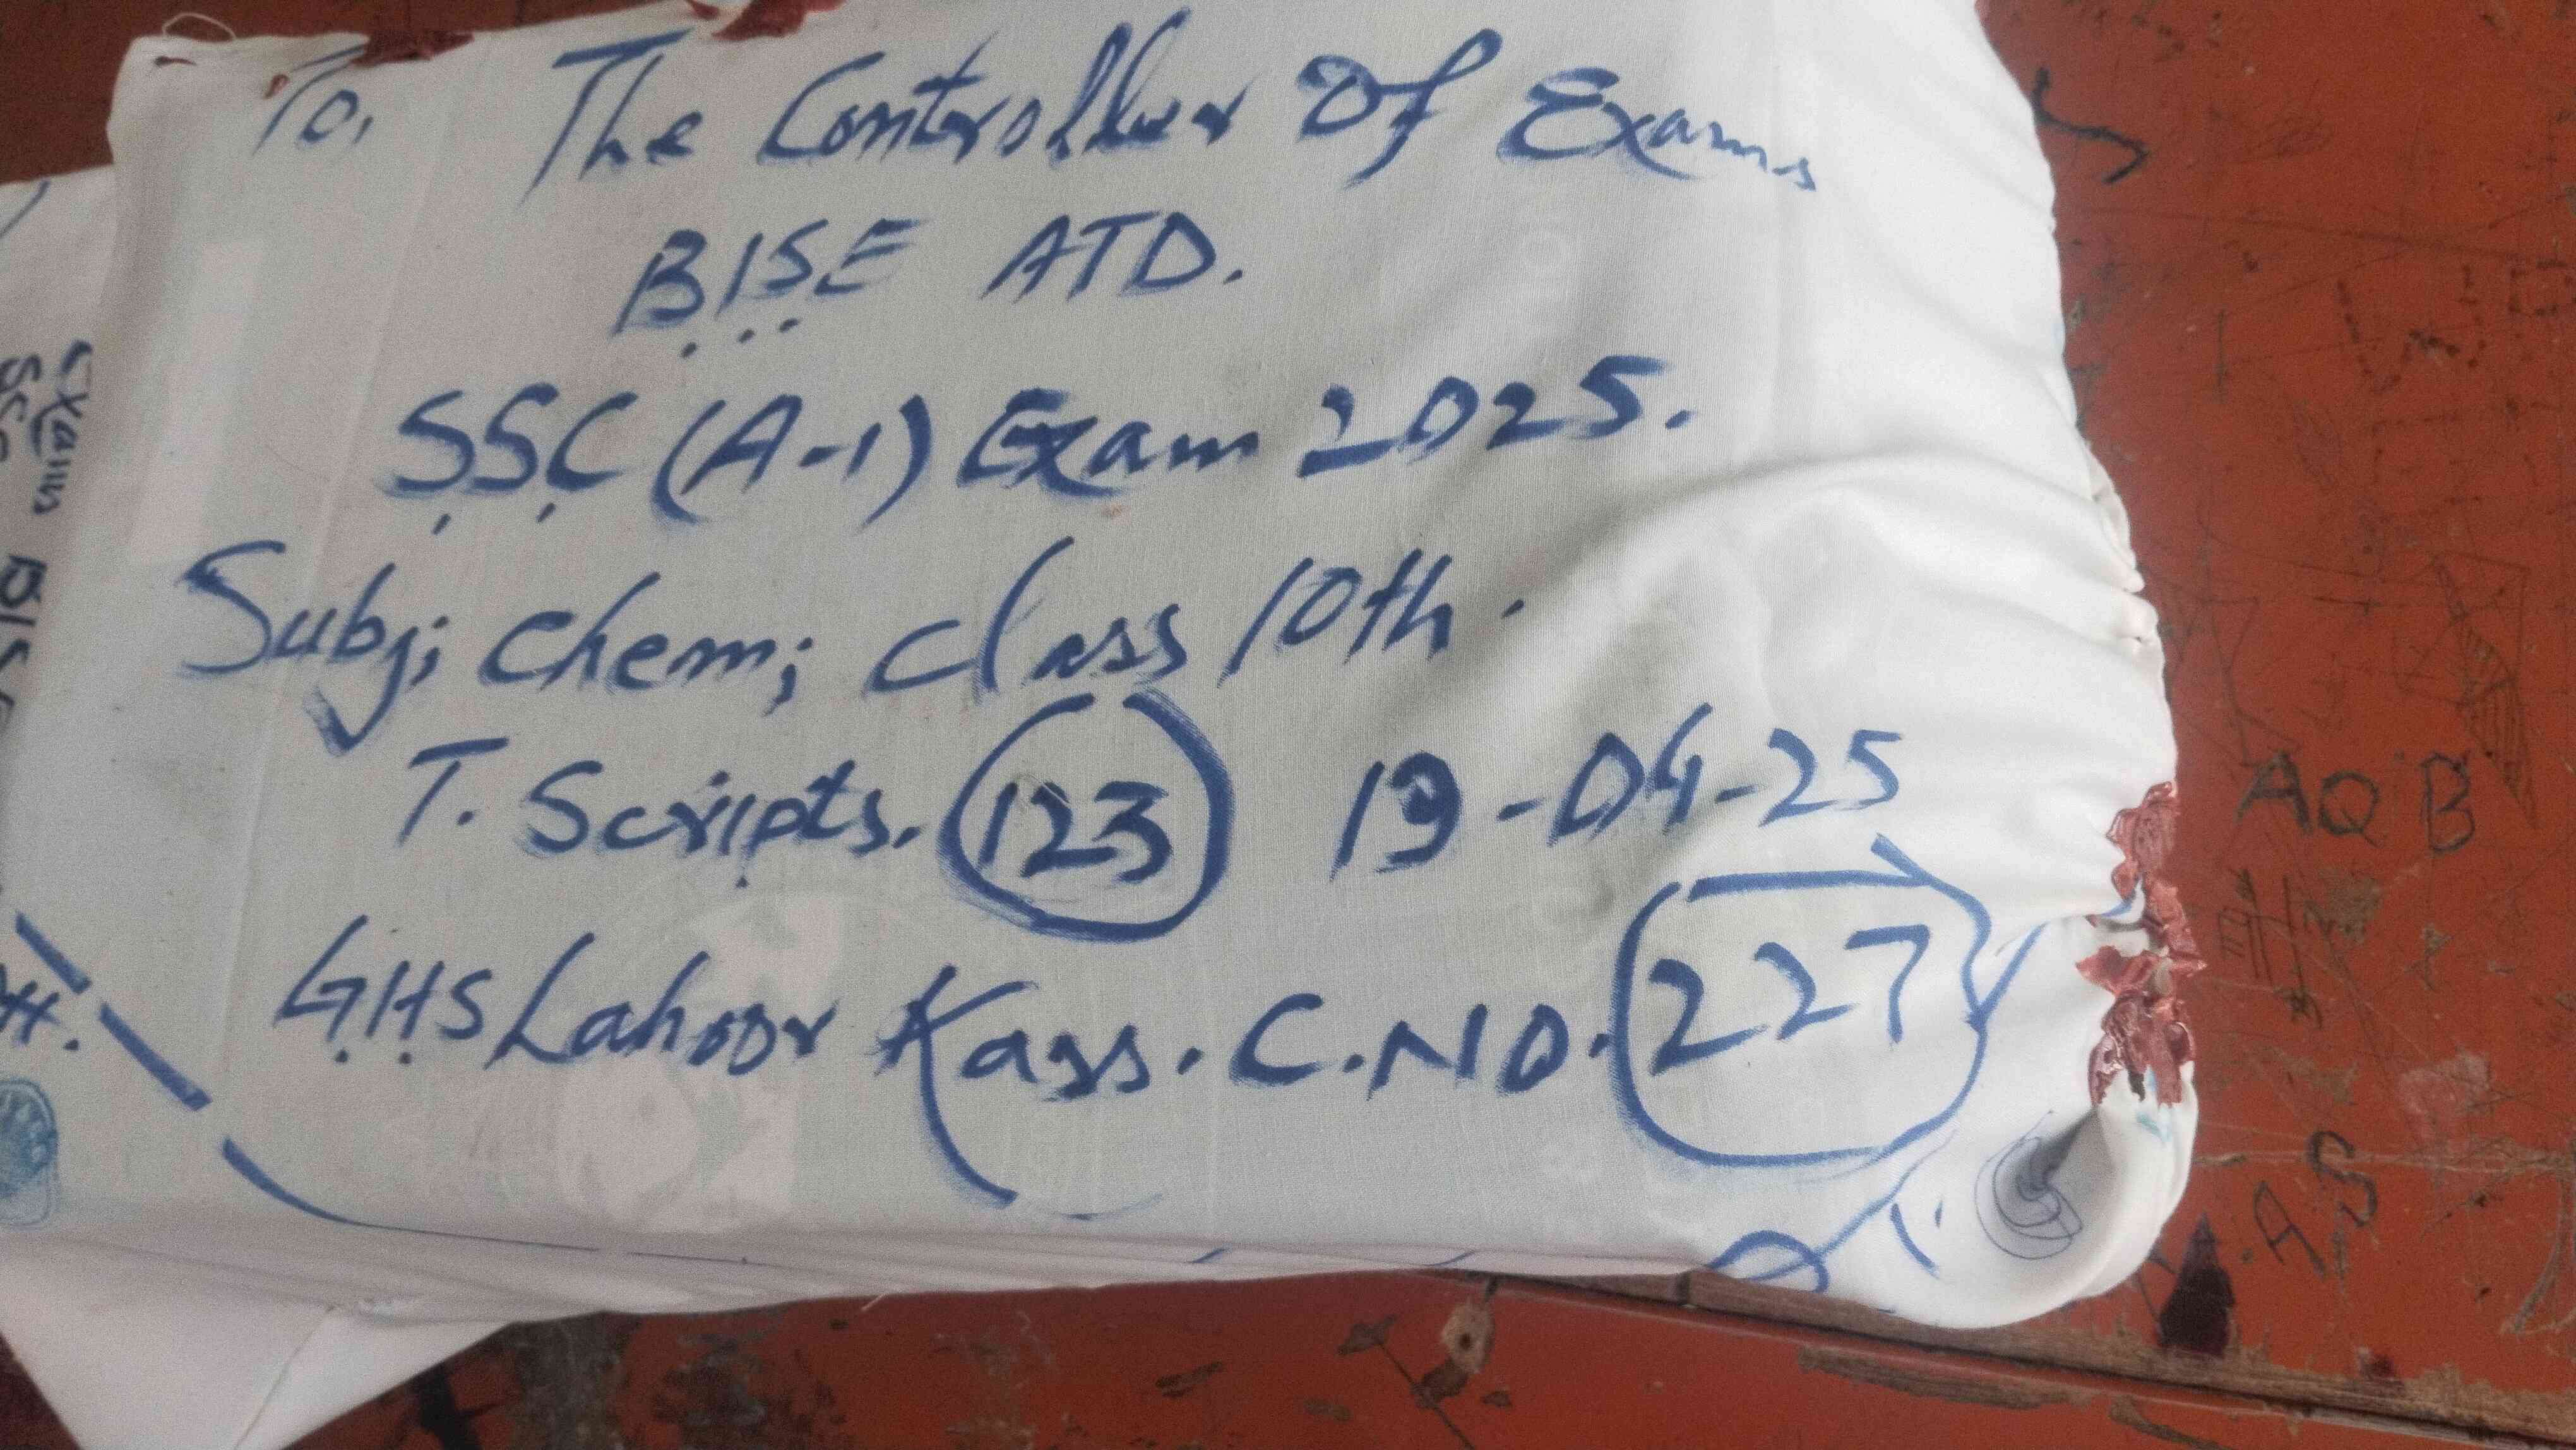 To, The Controller Of Exams
BISE ATD.
SSC (A-1) Exam 2025.
Subj; Chem; Class 10th.
T. Scripts. 123 19-04-25
GHS Lahoor Kass. C.NO. 227
Exams BISE
SSC
AQB
A.S